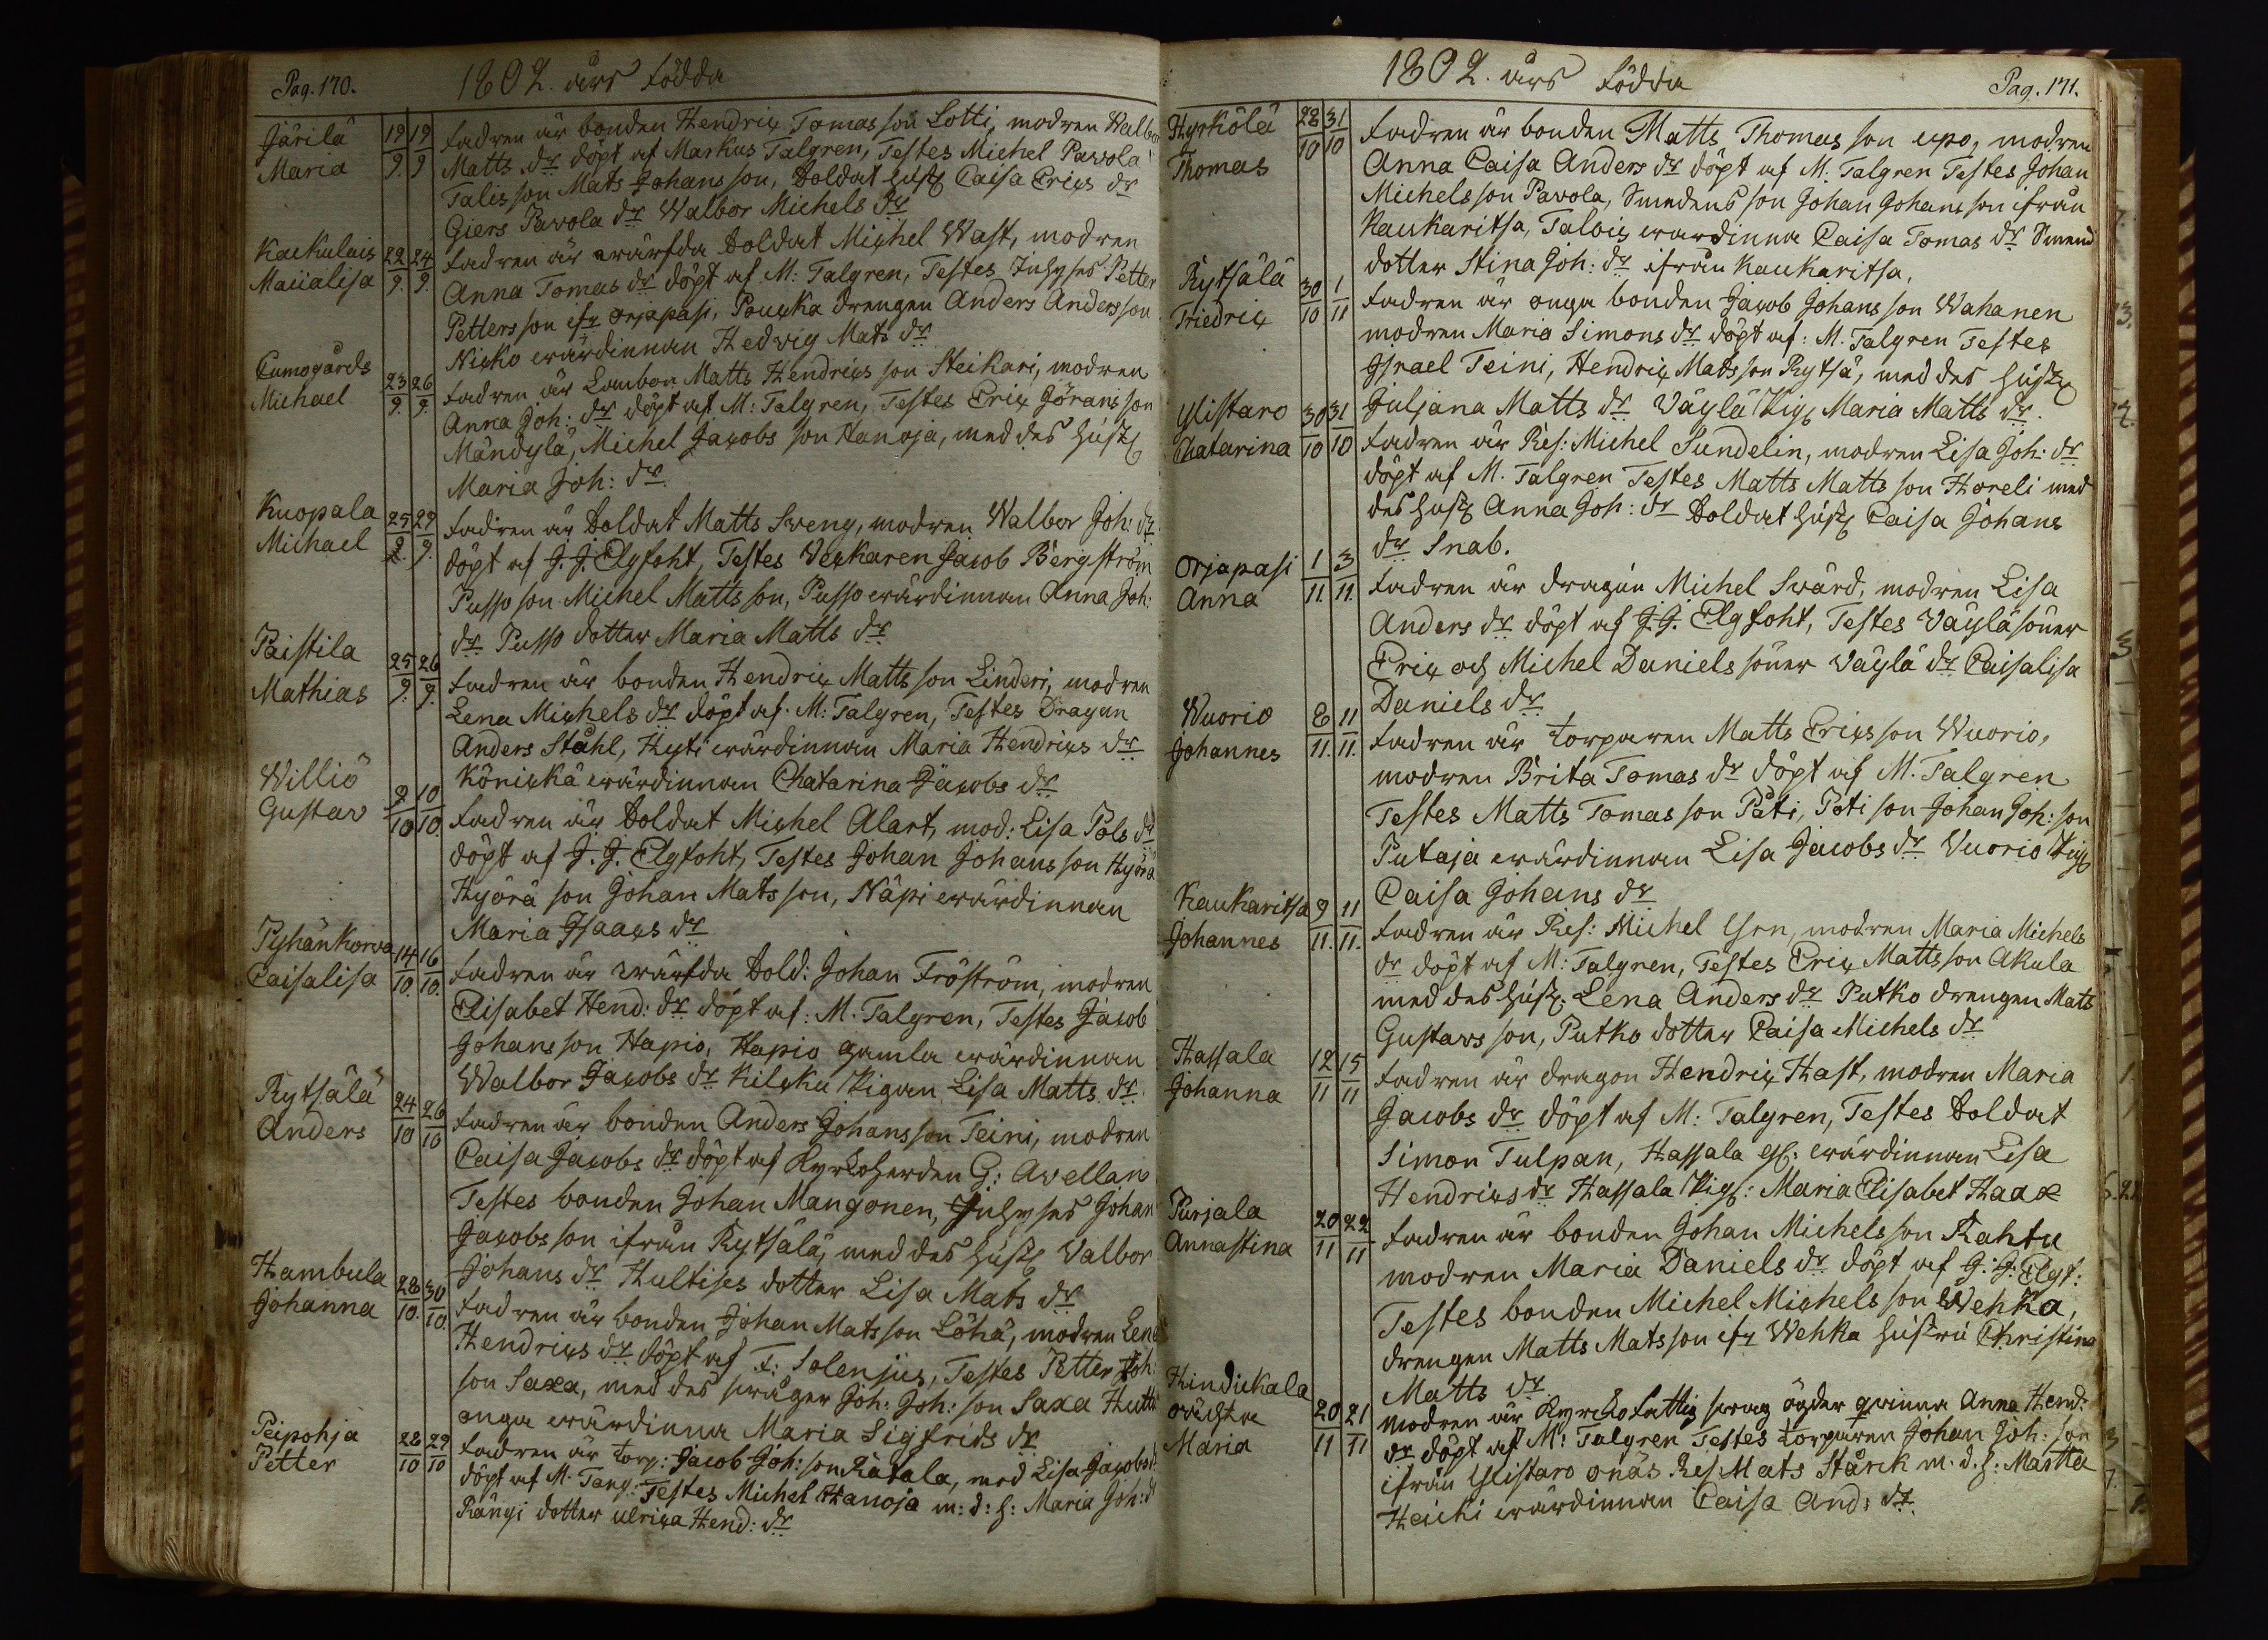 Pag. 170.
1802. års födda
Järilä 19/9. 19/9 fadren är bonden Hendrix Tomas son Lotti, modren Walbor
Maria Matts dr döpt af Markus Talgren, Testes Michel Pavola
Talis son Mats Johans son, Soldat hust Caisa Erics dr
Giers Pavola dr Walbor Michels dr
Kaukulais 22/9. 24/9. fadren är wärfda Soldat Michel Wast, modren
Maiialisa Anna Tomas dr döpt af M: Talgren, Testes Petter
Petters son ifr orjapasi, Poucka drengen Anders Anders son
Nicko wärdinnan Hedvig Mats dr
Cumogårds 23/9. 26/9. fadren är Lambon Matts Hendrics son Heikari, modren
Michael Anna Joh: dr döpt af M: Talgren, Testes Eric Görans son
Mändylä, Michel Jacobs son Hanoja, med des hust
Maria Joh: dr
Kuopala 25/9. 29/9. fadren är Soldat Matts Sveng, modren Walbor Joh: dr
Michael döpt af J. J. Elgfoht, Testes Veckaren Jacob Bergström
Pusso son Michel Matts son, Pusso wärdinnan Anna Joh:
dr Pusso dotter Maria Matts dr
Paistila 25/9. 26/9. fadren är bonden Hendric Matts son Linderi, modren
Mathias Lena Michels dr döpt af. M: Talgren, Testes Dragun
Anders Ståhl, Hyti wärdinnan Maria Hendrics dr
Könickä wärdinnan Chatarina Jacobs dr
Williö 9/10 10/10 fadren är Soldat Michel Alart, mod: Lisa Pols dr
Gustav döpt af J. J. Elgfoht, Testes Johan Johans son Hyörä
Hyörä son Johan Mats son, Näpi wärdinnan
Maria Isaacs dr
Pyhänkorva 14/10. 16/10. fadren är wärfda Sold: Johan Fröström, modren
Caisalisa Elisabet Hend: dr döpt af: M. Talgren, Testes Jacob
Johans son Hapio, Hapio gamla wärdinnan
Walbor Jacobs dr Kilcku Pigan Lisa Matts dr
Rytsälä 24/10 26/10 fadren är bonden Anders Johans son Teini, modren
Anders Caisa Jacobs dr döpt af Kyrkoherden G: Avellan
Testes bonden Johan Mangonen, Johan
Jacobs son ifrån Rytsälä, med des hust Valbor
Johans dr Hultises dotter Lisa Mats dr
Hambula 28/10. 30/10. fadren är bonden Johan Mats son Löhä, modren Lena
Johanna Hendrics dr döpt af F: Solenius, Testes Petter Joh:
son Saxa, med des swåger Joh: Joh: son Saxa
onga wärdinna Maria Sigfrids dr
Peipohja 28/10 29/10 fadren är torp: Jacob Joh: son Rätala, mod Lisa Jacobs
Petter döpt af M. Testes Michel Hanoja m: d: h: Maria Joh: d
Rängi dotter ulrica Hend: dr
1802. års födda
Pag. 171.
Hyrkölä 28/10 31/10 fadren är bonden Matts Thomas son upo, modren
Thomas Anna Caisa Anders dr döpt af M: Talgren Testes Johan
Michels son Pavola, Smedens son Johan Johans son ifrån
Kaukaritsa, Talois wardinna Caisa Tomas dr Smed
dotter Stina Joh: dr ifrån Kaukaritsa.
Rytsälä 30/10 1/11 fadren är onga bonden Jacob Johans son Wahanen
Friedric modren Maria Simons dr döpt af: M. Talgren Testes
Israel Teini, Hendric Mats son Rytsä, med des hust
Juljana Matts dr Väylä Pig Maria Matts dr.
Ylistaro 30/10 31/10 fadren är Res: Michel Sundelin, modren Lisa Joh: dr
Chatarina döpt af M. Talgren Testes Matts Matts son Horeli med
des hust Anna Joh: dr Soldat hust Caisa Johans
dr Snab.
Orjapasi 1/11. 3/11. fadren är dragun Michel Svärd, modren Lisa
Anna Anders dr döpt af J. J. Elgfoht, Testes Väylä söner
Eric och Michel Daniels söner Väylä dr Caisalisa
Daniels dr
Wuorio 8/11. 11/11. fadren är torparen Matts Erics son Wuorio,
Johannes modren Brita Tomas dr döpt af M. Talgren
Testes Matts Tomas son Päti, Poti son Johan Joh: son
Putaja wärdinnan Lisa Jacobs dr Vuorio Pig
Caisa Johans dr
Kaukaritsa 9/11. 11/11. fadren är Res: Michel Ysrn, modren Maria Michels
Johannes dr döpt af M: Talgren, Testes Eric Matts son Akula
med des hust: Lena Anders dr Putko drengen Mats
Gustavs son, Putko dotter Caisa Michels dr
Hassala 12/11 15/11 fadren är dragon Hendric Hast, modren Maria
Johanna Jacobs dr döpt af M: Talgren, Testes Soldat
Simon Tulpan, Hassala gl: wärdinnan Lisa
Hendrics dr Hassala Pig: Maria Elisabet Haax
Purjala 20/11 22/11 fadren är bonden Johan Michels son Rahtu
Annastina modren Maria Daniels dr döpt af J. J. Elgf:
Testes bonden Michel Michels son Wehka,
drengen Matts Mats son ifr Wehka hustru Christina
Matts dr
Hindickala 20/11 21/11 modren är Kyrko fattig swag ögder qwinna Anna Hend:
oächta dr döpt af M: Talgren Testes torparen Johan Joh: son
Maria ifrån Ylistaro onäs Res Mats Stärk m. d. h: Martta
Heicki wärdinnan Caisa And: dr.